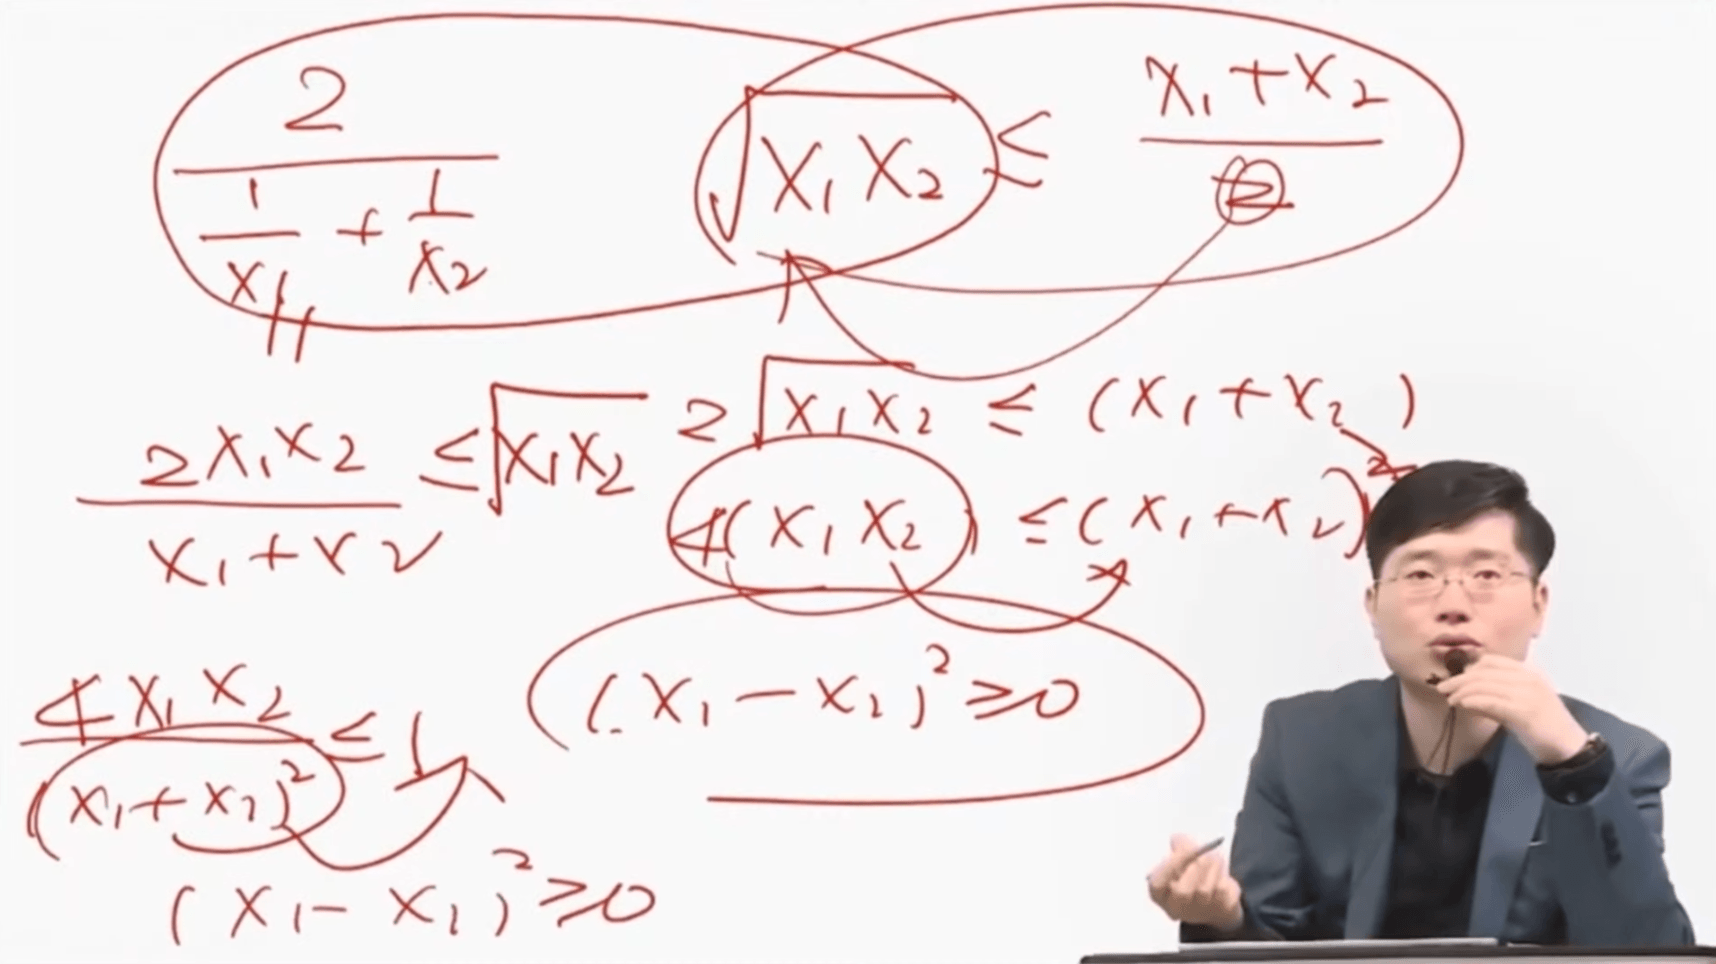 2/(1/x₁ + 1/x₂) √(x₁x₂) ≤ (x₁+x₂)/2
2x₁x₂/(x₁+x₂) ≤ √(x₁x₂)
2√(x₁x₂) ≤ (x₁+x₂)
4(x₁x₂) ≤ (x₁+x₂)²
(x₁-x₂)² ≥0
4x₁x₂/(x₁+x₂)² ≤ 1
(x₁-x₂)² ≥0